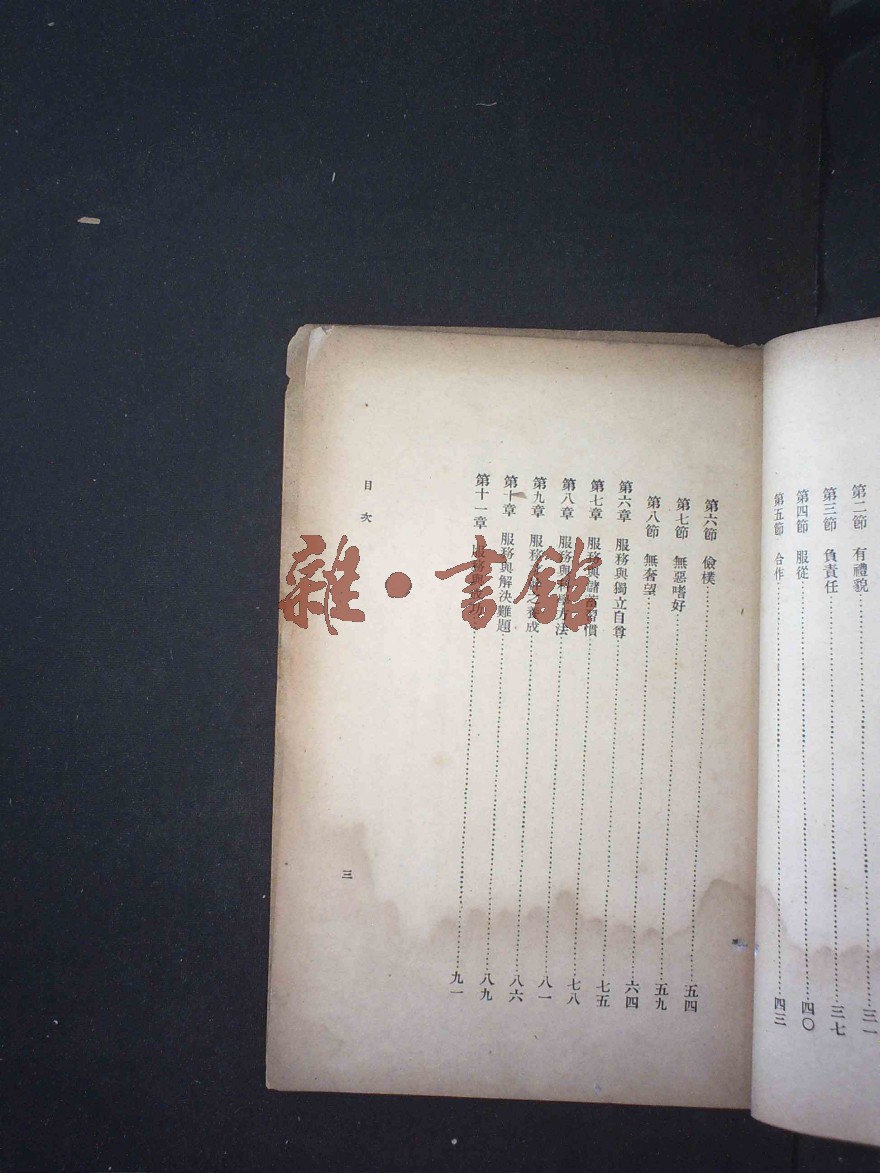 第二節 有禮貌 三一
第三節 負責任 三七
第四節 服從 四〇
第五節 合作 四三
第六節 儉樸 五四
第七節 無惡嗜好 五九
第八節 無奢望 六四
第六章 服務與獨立自尊 七五
第七章 服務與儲蓄習慣 七八
第八章 服務與科學方法 八一
第九章 服務 之養成 八六
第十章 服務與解決難題 八九
第十一章 服務與成功 九一
目次
三
雜·書館